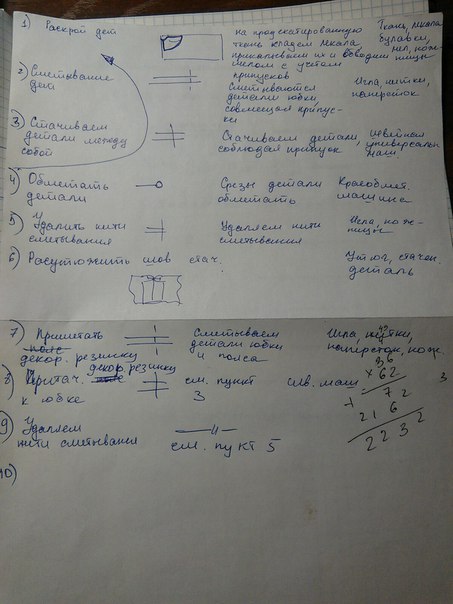 1) Раскрой дет
на продекатированную Ткань, мкала
ткань кладем мкала, булавки,
прикалываем их и обводим мел, нож-
мелом с учетом ницы
припусков
2) Сметывание Сметываются Игла, нитки,
дет детали юбки, наперсток
совмещая припус-
ки
3) Стачиваем Стачиваем детали, швейная
детали между соблюдая припуск универсальн
собой маш.
4) Обметать Срезы детали Краеобмет.
детали обметать машина
5) Удалить нити Удаляем нити Игла, но ж-
сметывания сметывания ницы
6) Расутюжить шов стач. Утюг, стачен.
деталь
7) Приметать Сметываем Игла, нитки,
пояс детали юбки наперсток, нож.
декор. резинку и пояса
8) Притач. декор резинку см. пункт шв. маш
к юбке 3
9) Удаляем см. пукт 5
нити сметывания
10)
36
× 62
72
+ 216
2232
3